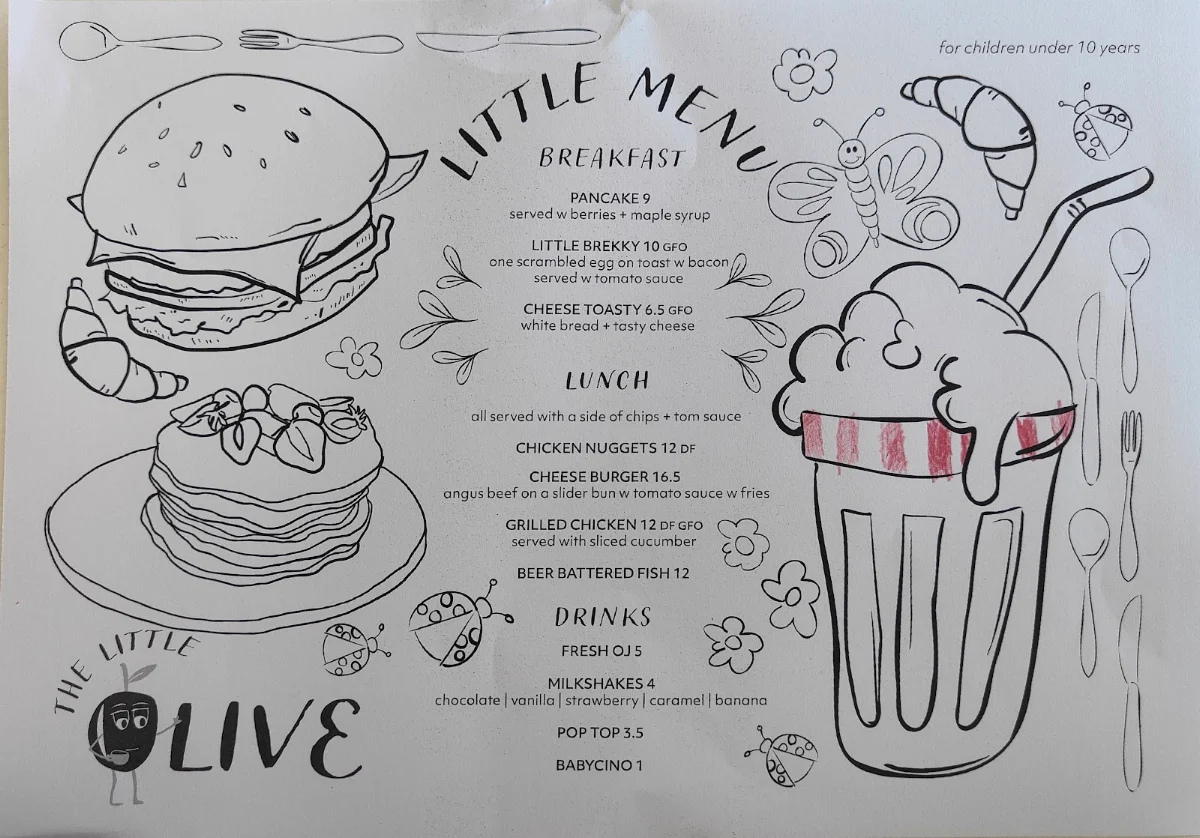 for children under 10 years
LITTLE MENU
BREAKFAST
PANCAKE 9
served w berries + maple syrup
LITTLE BREKKY 10 GFO
one scrambled egg on toast w bacon
served w tomato sauce
CHEESE TOASTY 6.5 GFO
white bread + tasty cheese
LUNCH
all served with a side of chips + tom sauce
CHICKEN NUGGETS 12 DF
CHEESE BURGER 16.5
angus beef on a slider bun w tomato sauce w fries
GRILLED CHICKEN 12 DF GFO
served with sliced cucumber
BEER BATTERED FISH 12
DRINKS
FRESH OJ 5
MILKSHAKES 4
chocolate | vanilla | strawberry | caramel | banana
POP TOP 3.5
BABYCINO 1
THE LITTLE
OLIVE